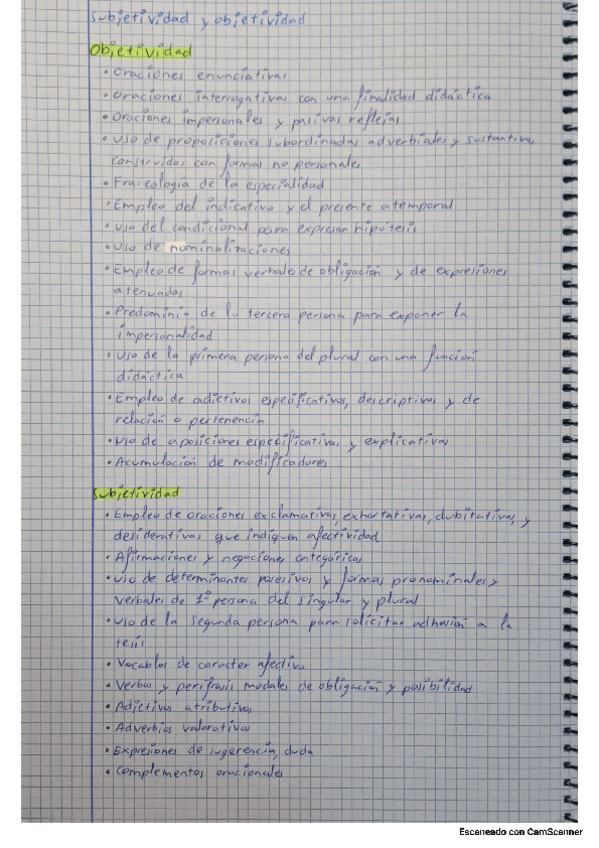 subjetividad y objetividad
Objetividad
• Oraciones enunciativas
• Oraciones interrogativas con una finalidad didáctica
• Oraciones impersonales y pasivas reflejas
• Uso de proposiciones subordinadas adverbiales y sustantivas,
construidas con formas no personales
• Fraseología de la especialidad
• Empleo del indicativo y el presente atemporal
• Uso del condicional para expresar hipótesis
• Uso de nominalizaciones
• Empleo de formas verbales de obligación y de expresiones
atenuadas
• Predominio de la tercera persona para exponer la
impersonalidad
• Uso de la primera persona del plural con una función
didáctica
• Empleo de adjetivos especificativos, descriptivos y de
relación o pertenencia
• Uso de aposiciones especificativas y explicativas
• Acumulación de modificadores
Subjetividad
• Empleo de oraciones exclamativas, exhortativas, dubitativas, y
desiderativas que indiquen afectividad
• Afirmaciones y negaciones categóricas
• Uso de determinantes posesivos y formas pronominales y
verbales de 1º persona del singular y plural
• Uso de la segunda persona para solicitar adhesión a la
tesis
• Vocablos de caracter afectivo
• Verbos y perífrasis modales de obligación y posibilidad
• Adjetivos atributivos
• Adverbios valorativos
• Expresiones de sugerencia, duda
• Complementos oracionales
Escaneado con CamScanner